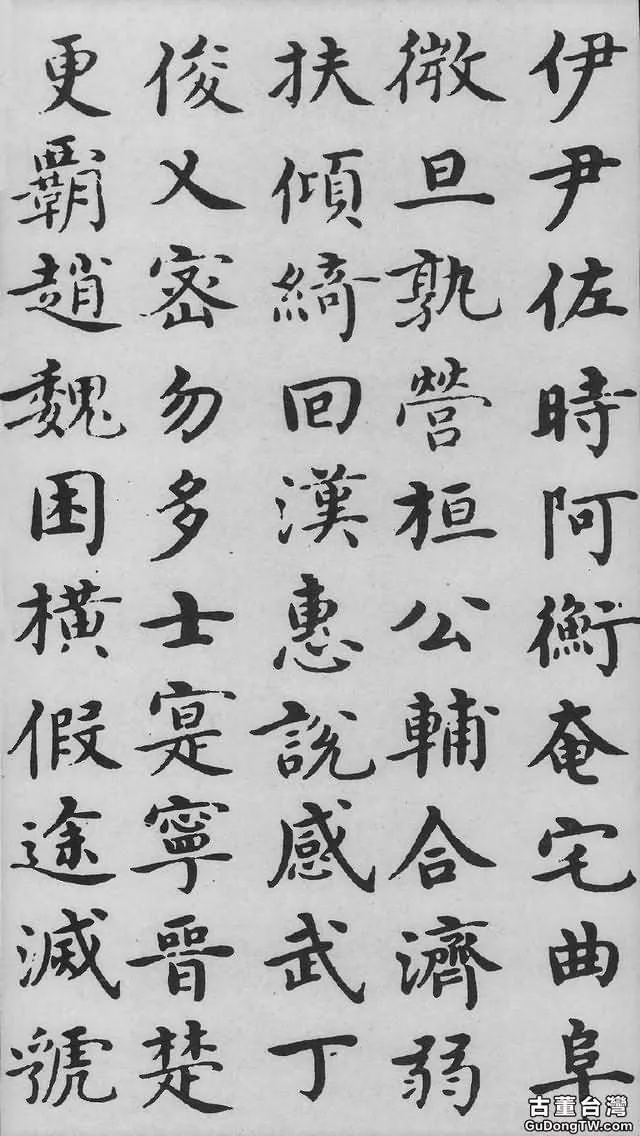 伊尹佐時阿衡奄宅曲阜
微旦孰營桓公輔合濟弱
扶傾綺回漢惠說感武丁
俊乂密勿多士寔寧晉楚
更霸趙魏困橫假途滅虢
古董台灣
GuDongTW.com